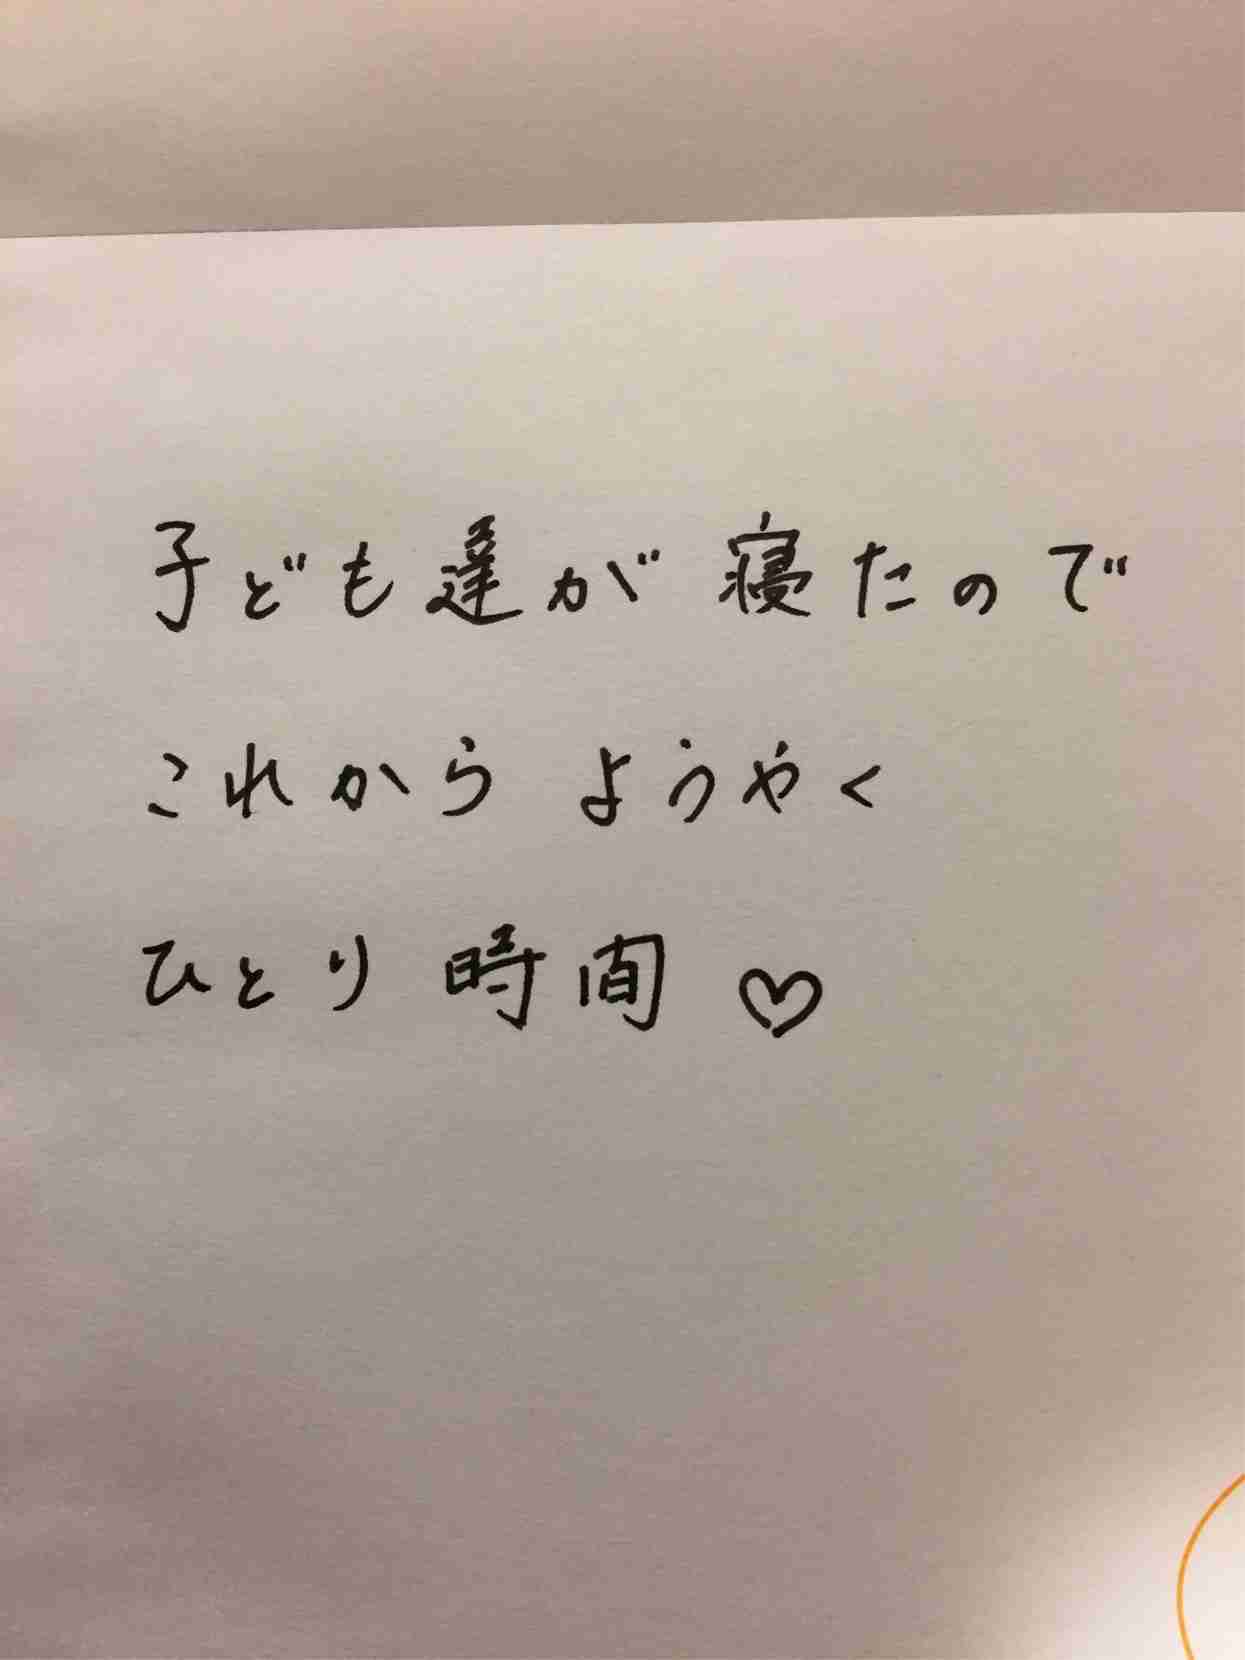 子ども達が寝たので
これからようやく
ひとり時間♡